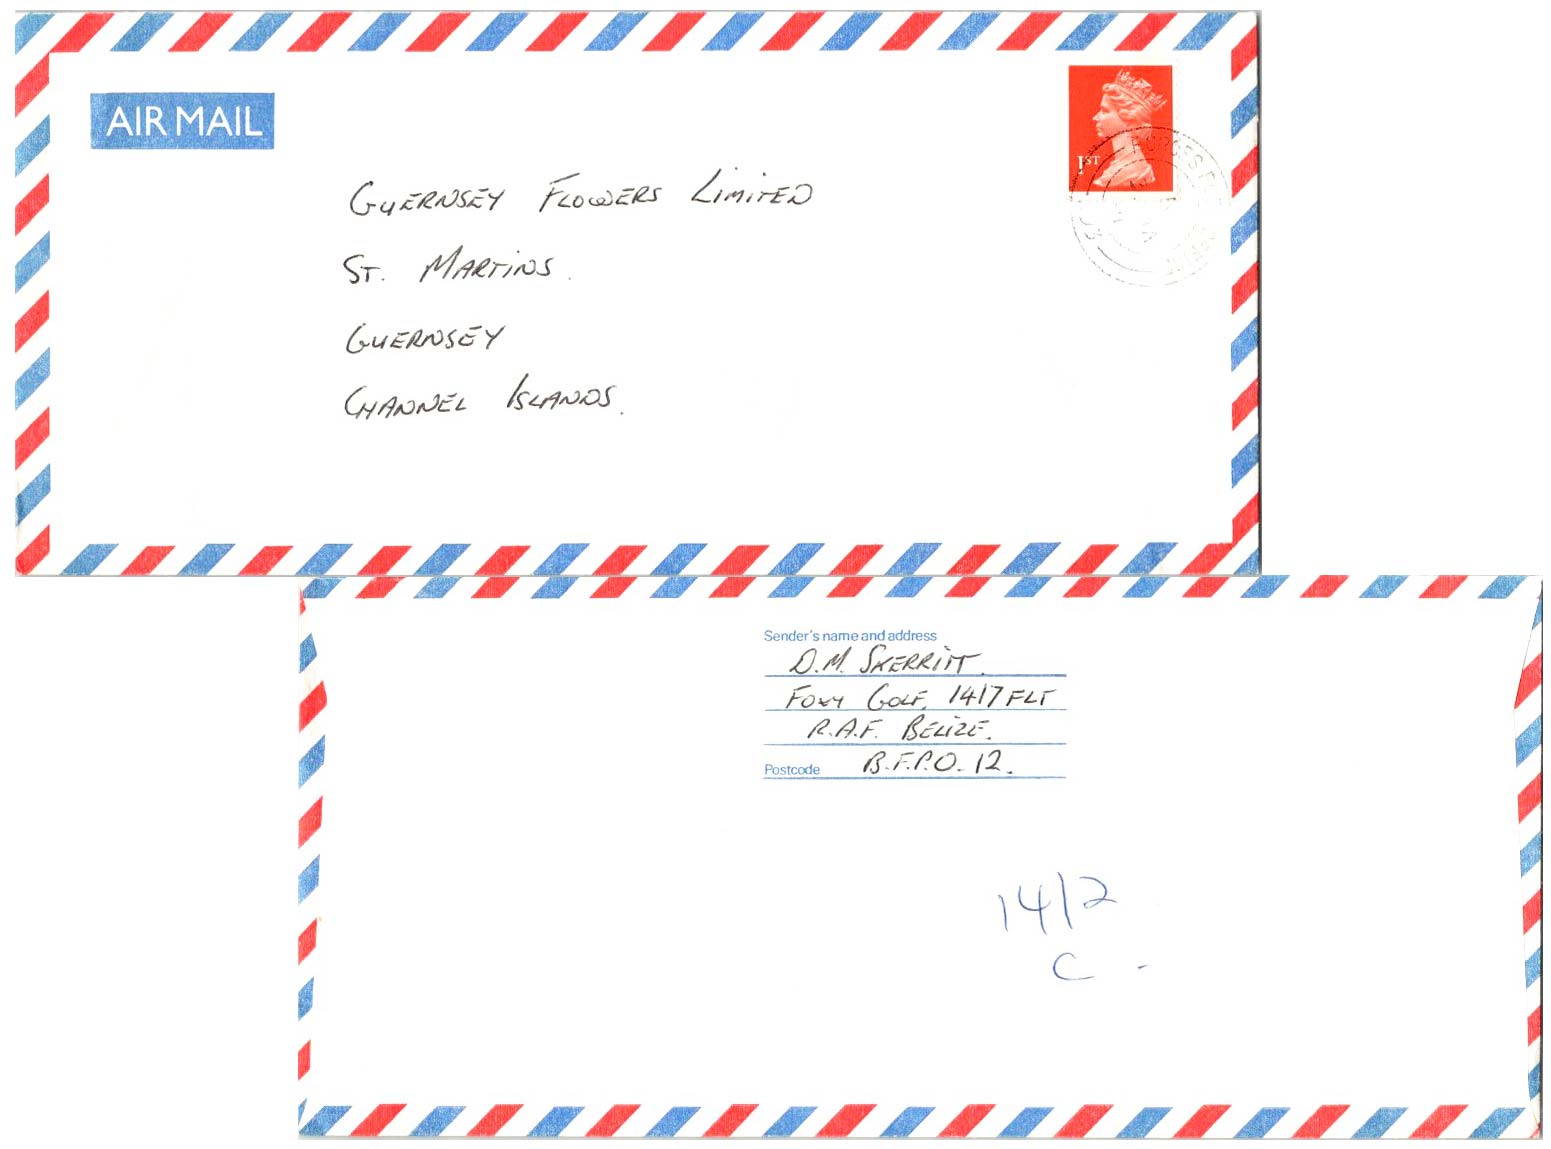 AIR MAIL
1ST
GUERNSEY FLOWERS LIMITED
ST. MARTINS.
GUERNSEY
CHANNEL ISLANDS.
Sender's name and address
D.M. SKERRITT.
FOXY GOLF, 1417 FLT
R.A.F. BELIZE.
Postcode B.F.P.O. 12.
14/2
C -